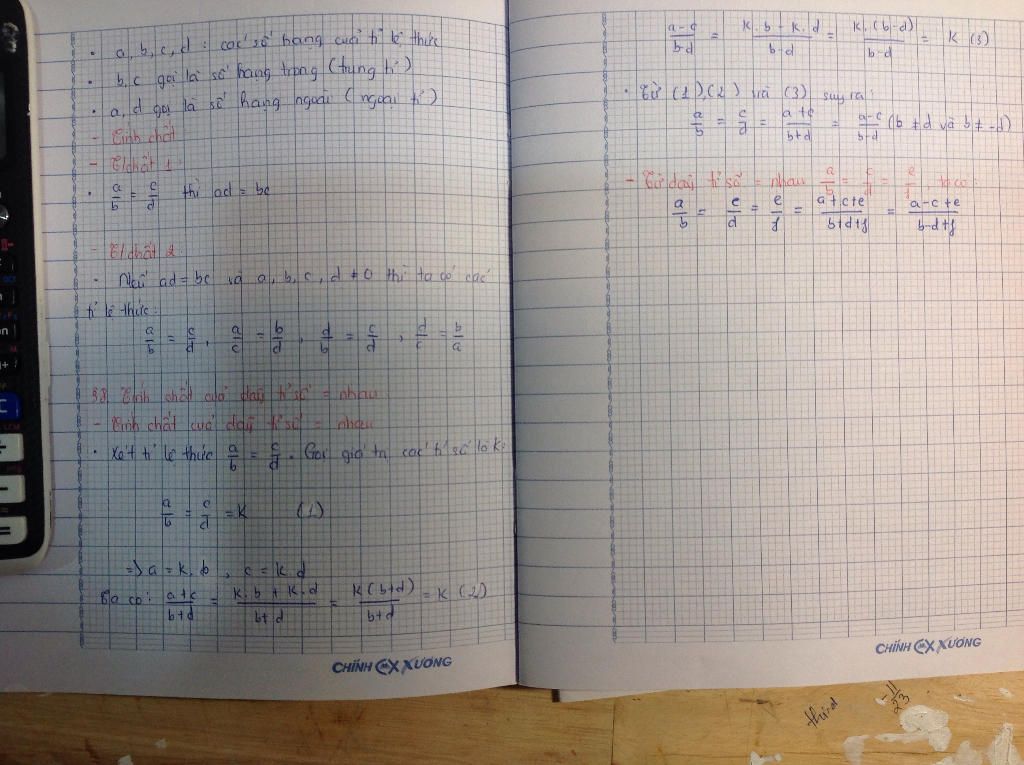 • a, b, c, d : các số hạng của tỉ lệ thức
• b, c gọi là số hạng trong (trung tỉ)
• a, d gọi là số hạng ngoài (ngoại tỉ)
- Tính chất
- T/chất 1:
• a/b = c/d thì ad = bc
- T/chất 2:
- Nếu ad = bc và a, b, c, d ≠ 0 thì ta có các
tỉ lệ thức:
a/b = c/d , a/c = b/d , d/b = c/d , d/c = b/a
§8. Tính chất của dãy tỉ số = nhau
- Tính chất của dãy tỉ số = nhau
• Xét tỉ lệ thức a/b = c/d . Gọi giá trị các tỉ số là K:
a/b = c/d = K (1)
=> a = K.b , c = K.d
Ta có: a+c/b+d = K.b + K.d/b+d = K(b+d)/b+d = K (2)
CHÍNH XƯƠNG
a-c/b-d = K.b - K.d/b-d = K.(b-d)/b-d = K (3)
• Từ (1),(2) và (3) suy ra:
a/b = c/d = a+c/b+d = a-c/b-d (b ≠ d và b ≠ -d)
- Từ dãy tỉ số = nhau a/b = c/d = e/f , ta có:
a/b = e/d = e/f = a+c+e/b+d+f = a-c+e/b-d+f
CHÍNH XƯƠNG
-11/23